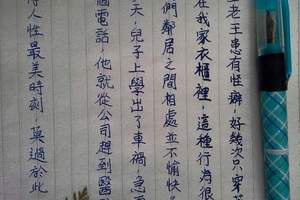 老王患有怪癖，好幾次只穿
在我家衣櫃裡，這種行為很
們鄰居之間相處並不愉快。
天，兒子上學出了車禍，急
個電話，他就從公司趕到醫
人性最美時刻，莫過於此